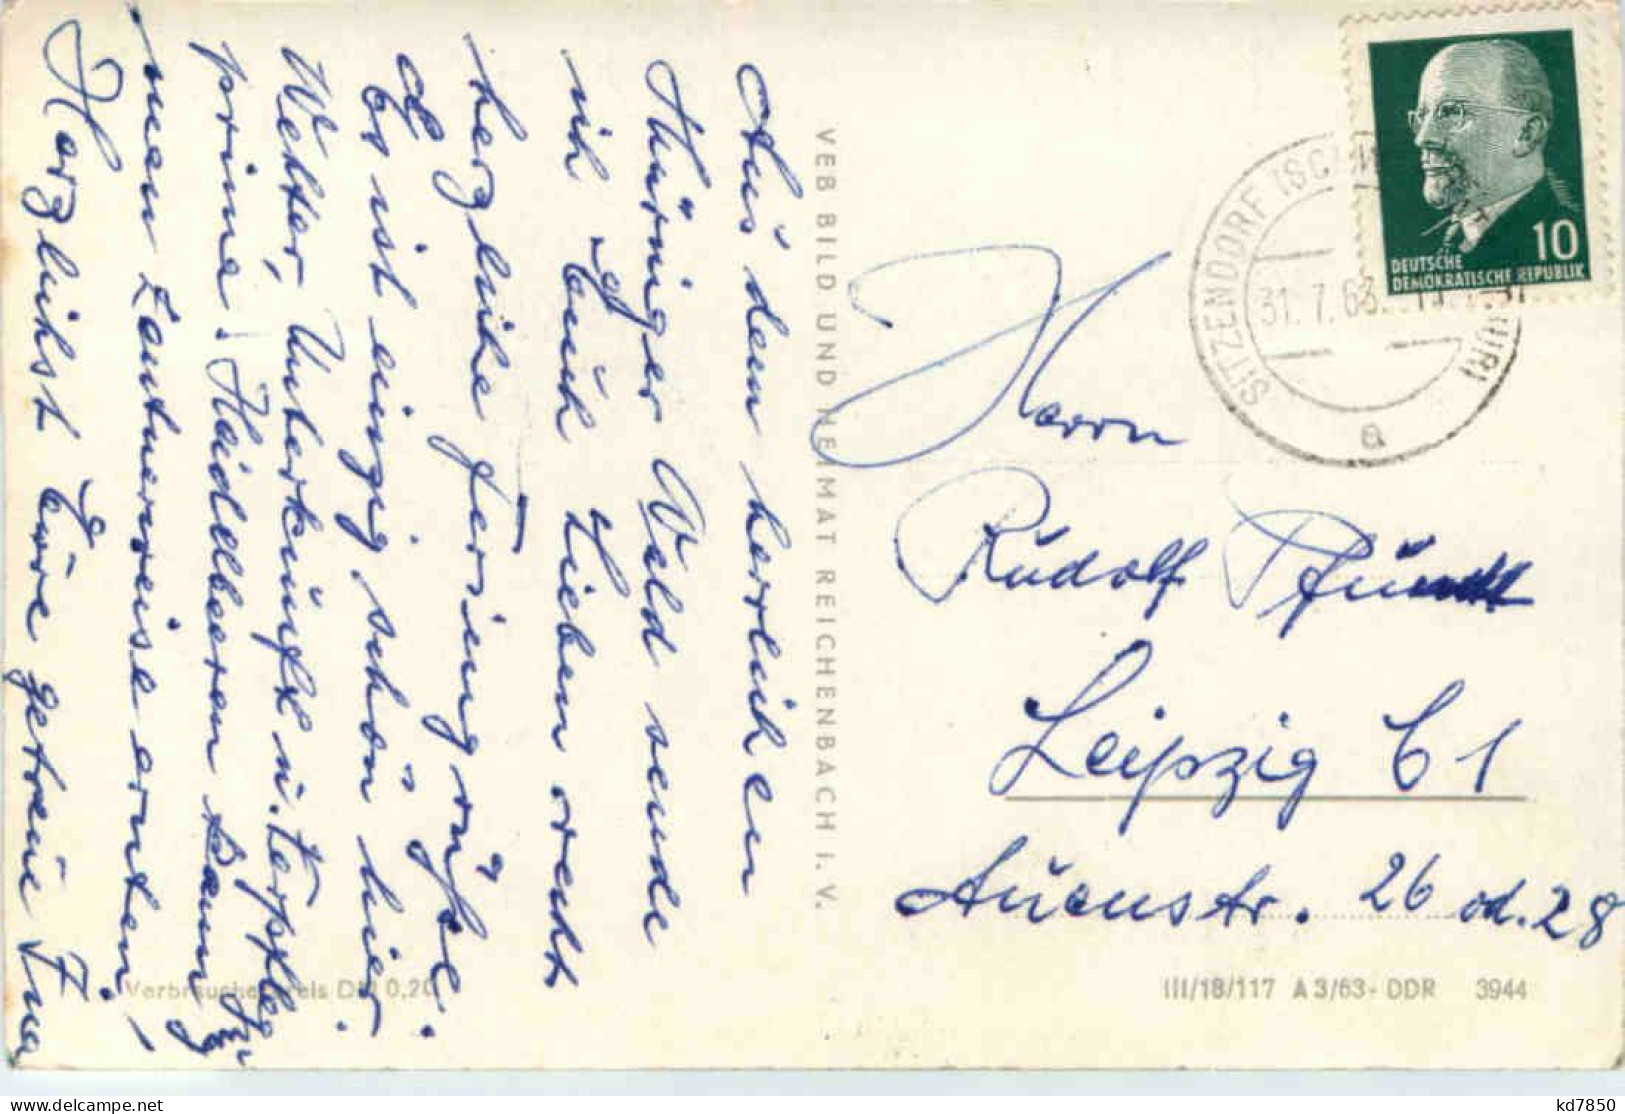 Aus dem herrlichen
Thüringer Wald sende
ich Euch Lieben recht
herzliche Feriengrüße.
Es ist einzig schön hier.
Wetter, Unterkunft u. Verpfleg
prima. Heidelbeeren kann
man zentnerweise ernten,
Herzlichst Eure getreue
VEB BILD UND HEIMAT REICHENBACH I. V.
Verbraucherpreis DM 0,20
SITZENDORF (SCHWARZAT THÜR)
31.7.63
a
10
DEUTSCHE
DEMOKRATISCHE REPUBLIK
Herrn
Rudolf
Leipzig C 1
Auenstr. 26 od. 28
III/18/117 A 3/63 - DDR 3944
kd7850